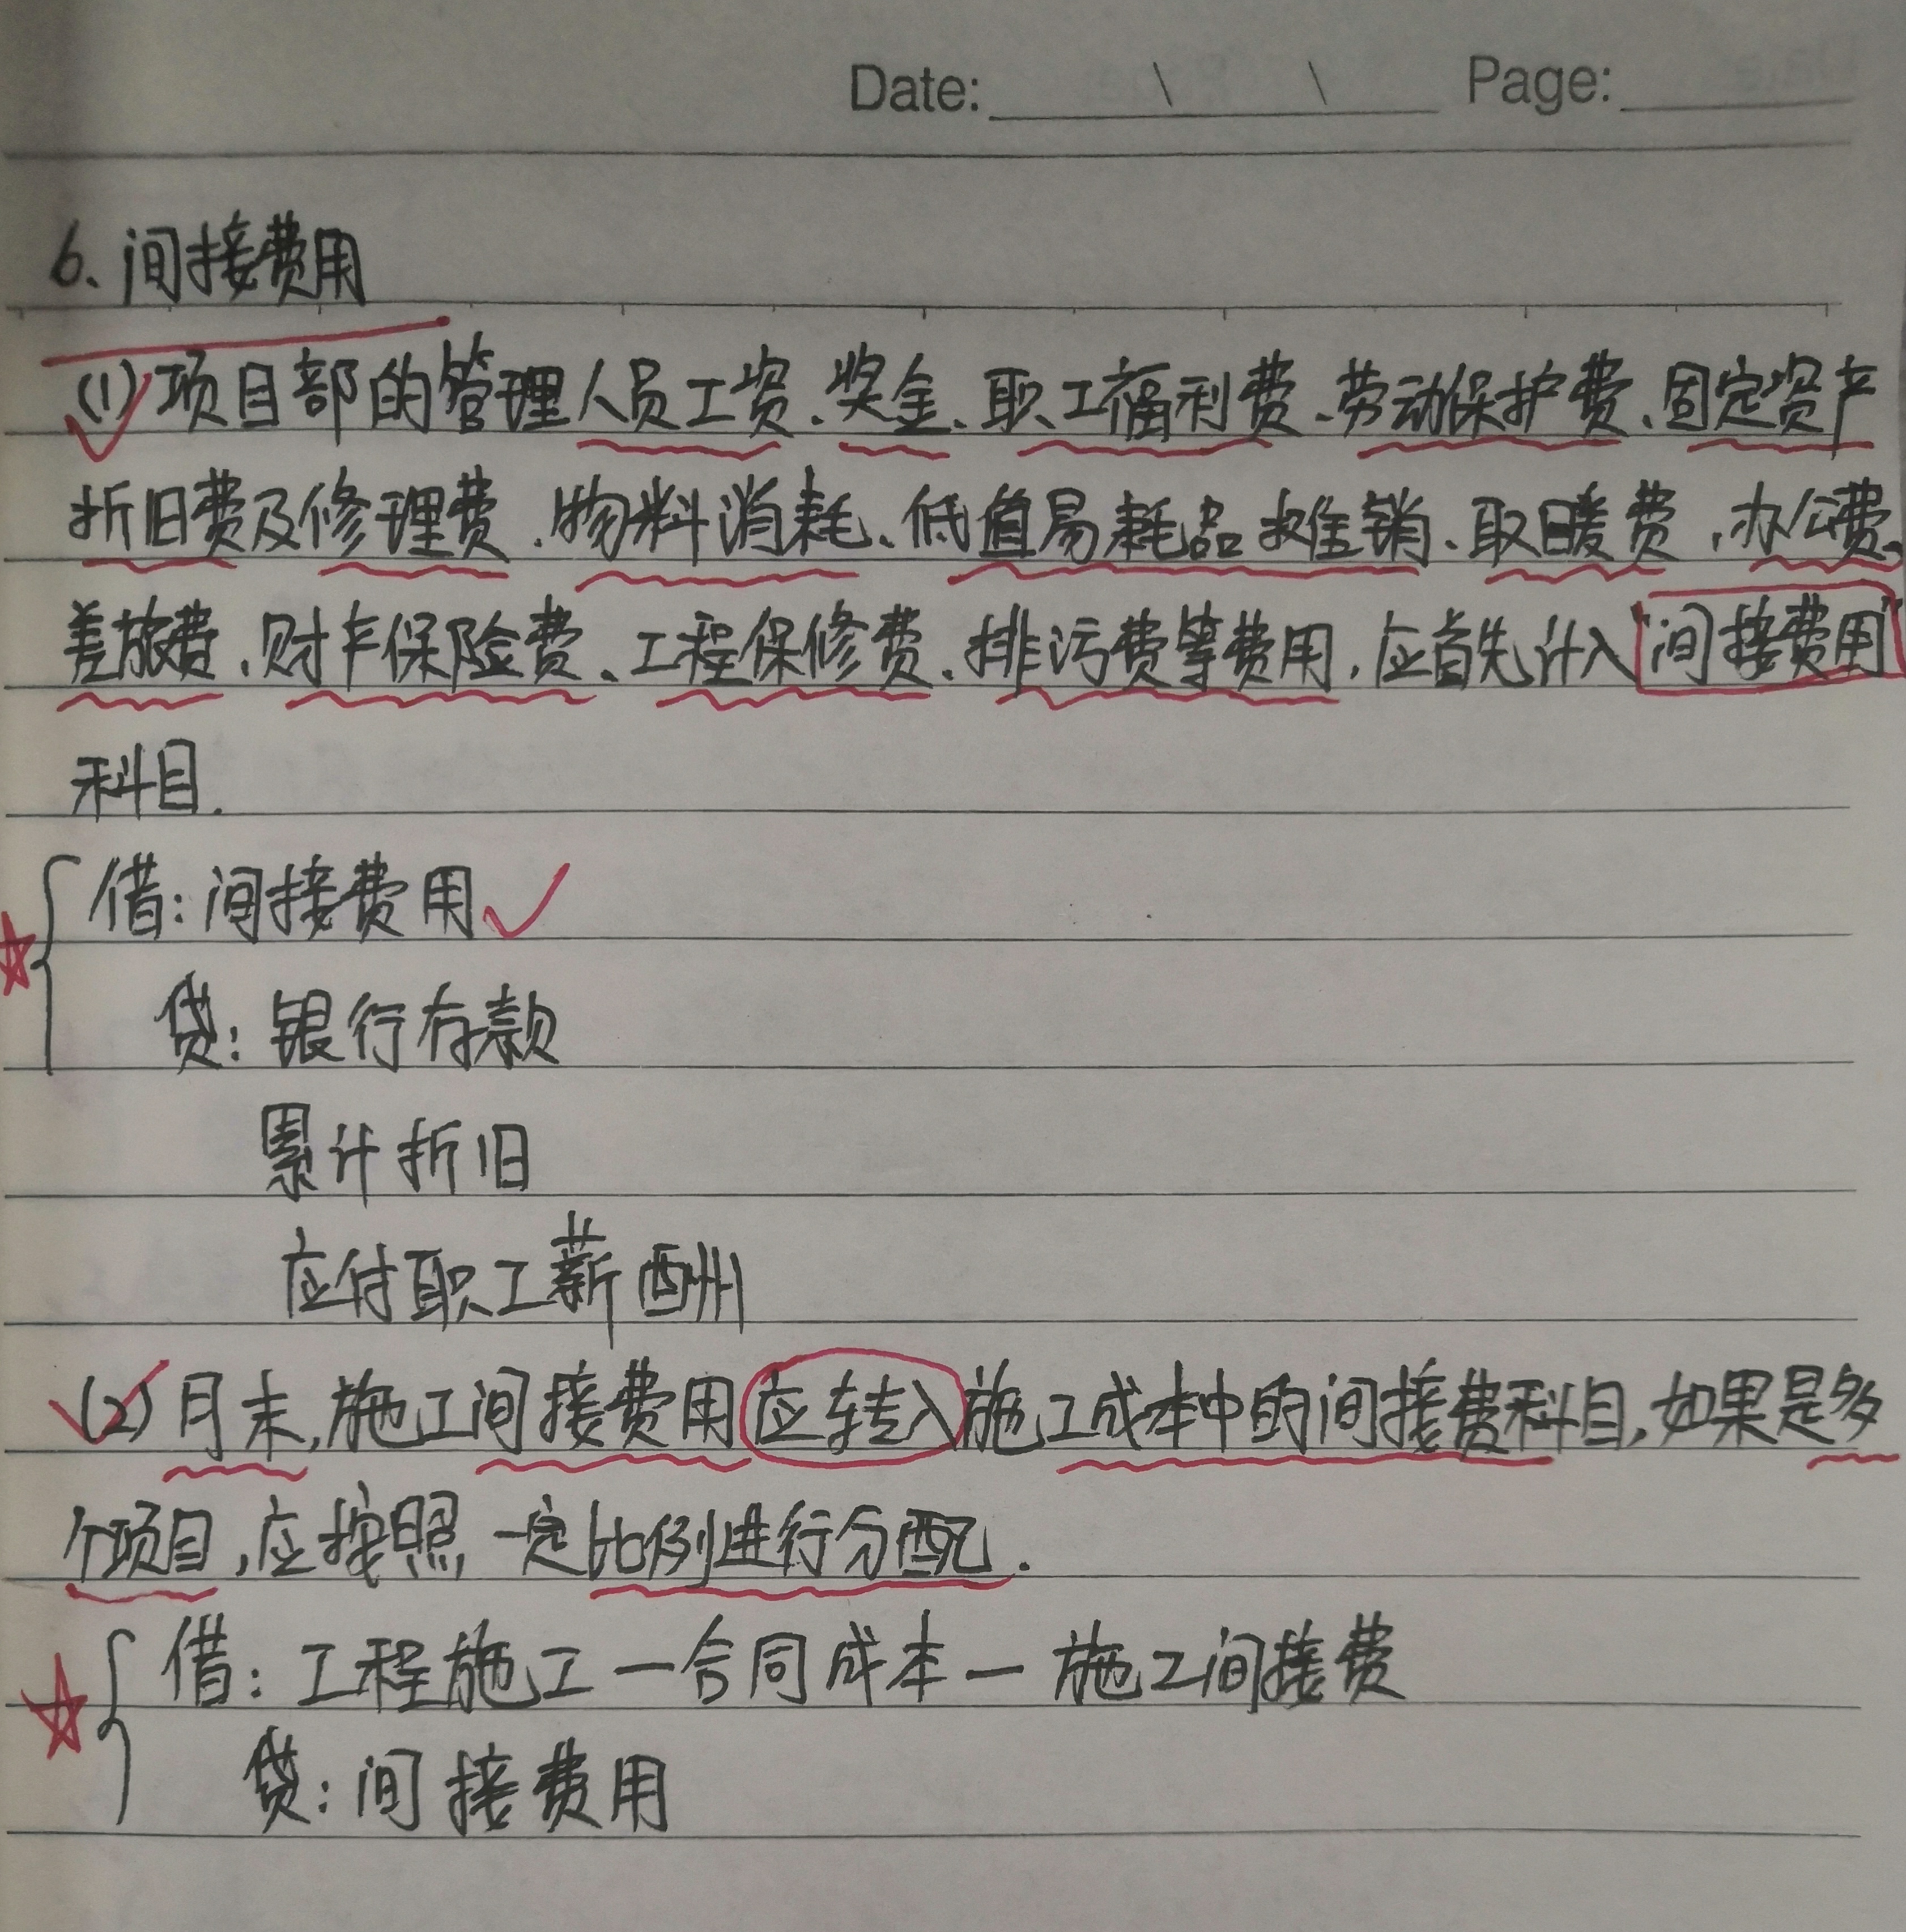 Date: \ \ Page:
6、间接费用
(1)项目部的管理人员工资、奖金、职工福利费、劳动保护费、固定资产
折旧费及修理费、物料消耗、低值易耗品摊销、取暖费,办公费、
差旅费、财产保险费、工程保修费、排污费等费用,应首先计入"间接费用"
科目.
借:间接费用
贷:银行存款
累计折旧
应付职工薪酬
(2)月末,施工间接费用应转入施工成本中的间接费科目,如果是多
个项目,应按照一定比例进行分配.
借:工程施工一合同成本一施工间接费
贷:间接费用